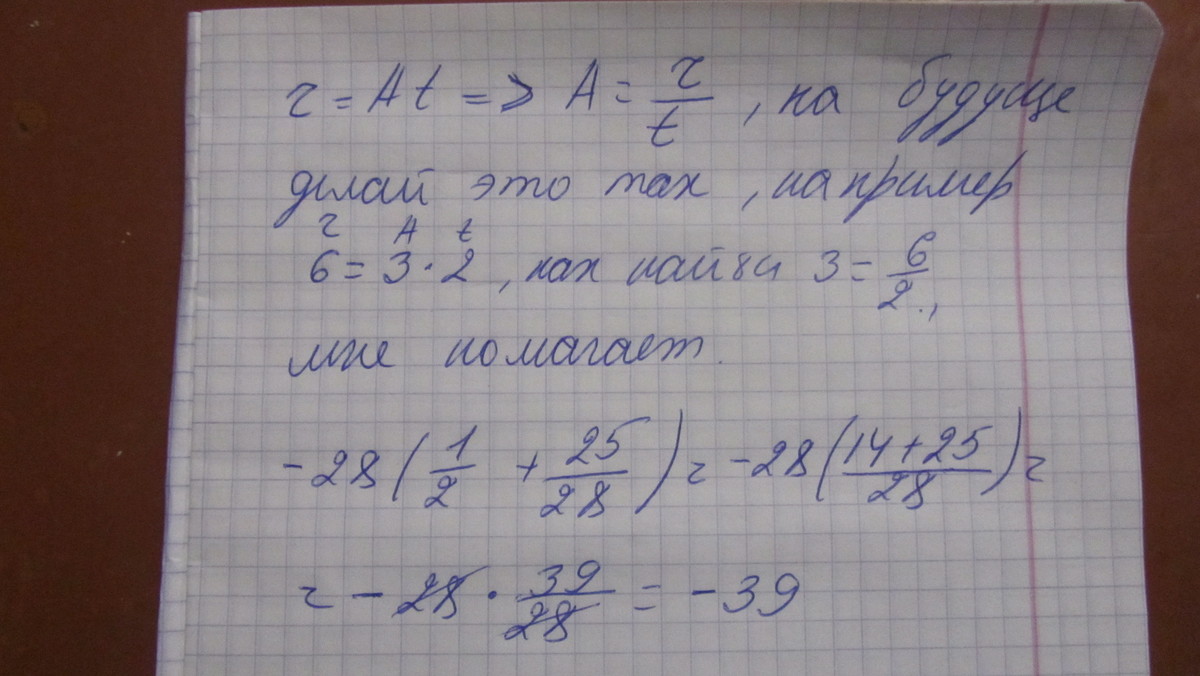 r = At => A = r/t, на будуще
делай это так, например
r A t
6 = 3 · 2, как найти 3 = 6/2.,
мне помагает.
-28 (1/2 + 25/28) = -28 (14+25/28) =
= -28 · 39/28 = -39